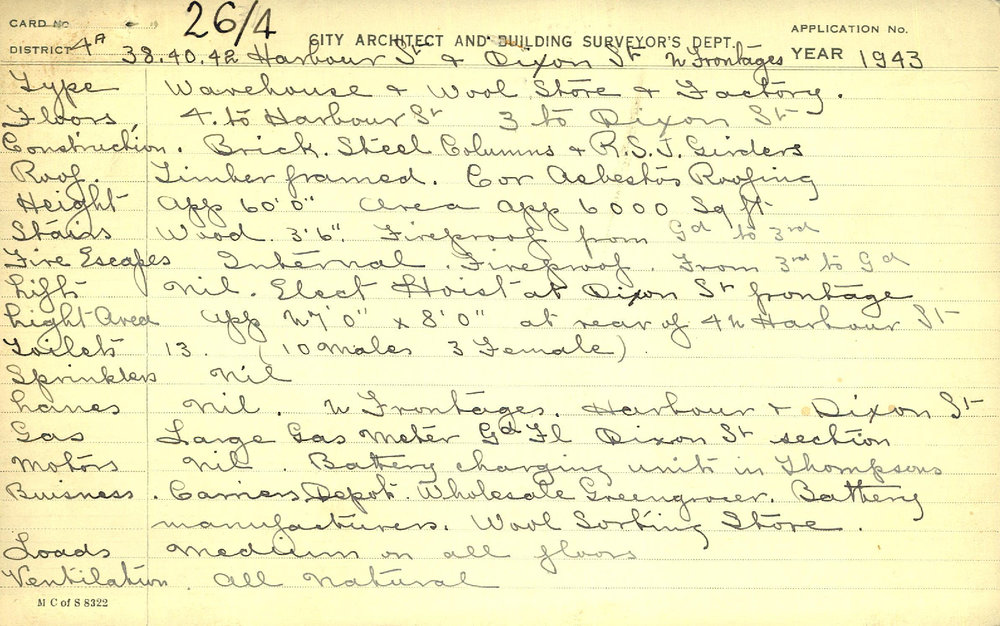 CARD No 26/4 CITY ARCHITECT AND BUILDING SURVEYOR'S DEPT. APPLICATION No.
DISTRICT 4A 38.40.42 Harbour St & Dixon St 2 Frontages YEAR 1943
Type Warehouse & Wool Store & Factory.
Floors 4. to Harbour St 3 to Dixon St
Construction. Brick. Steel Columns & R.S.J. Girders
Roof. Timber framed. Cor Asbestos Roofing
Height App 60'0" Area App 6000 Sq ft
Stairs Wood. 3'6". Fireproof from Gd to 3rd
Fire Escapes Internal. Fireproof. From 3rd to Gd
Lifts Nil. Elect Hoist at Dixon St frontage
Light Area App 27'0" x 8'0" at rear of 42 Harbour St
Toilets 13. (10 Males 3 Female)
Sprinklers Nil
Lanes Nil. 2 Frontages. Harbour & Dixon St
Gas Large Gas Meter Gd Fl Dixon St section
Motors Nil. Battery charging units in Thompsons
Buisness. Carriers Depot. Wholesale Greengrocer. Battery
manufacturers. Wool Sorting Store.
Loads Medium on all floors
Ventilation All Natural
M C of S 8322